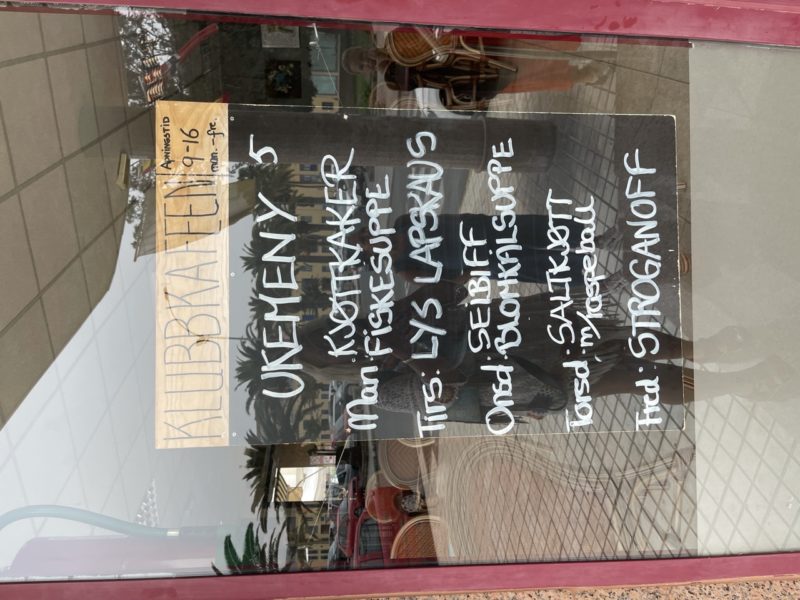 KLUBBKAFFEEN
ÅPNINGSTID
9-16
man.-fre.
UKEMENY 5
Man: KJØTTKAKER
FISKESUPPE
Tirs: LYS LAPSKAUS
Onsd: SEIBIFF
BLOMKÅLSUPPE
Torsd: SALTKJØTT
m/raspeball
Fred: STROGANOFF